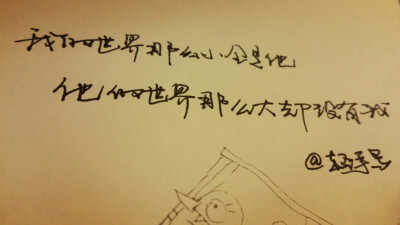 我的世界那么小全是他
他的世界那么大却没有我